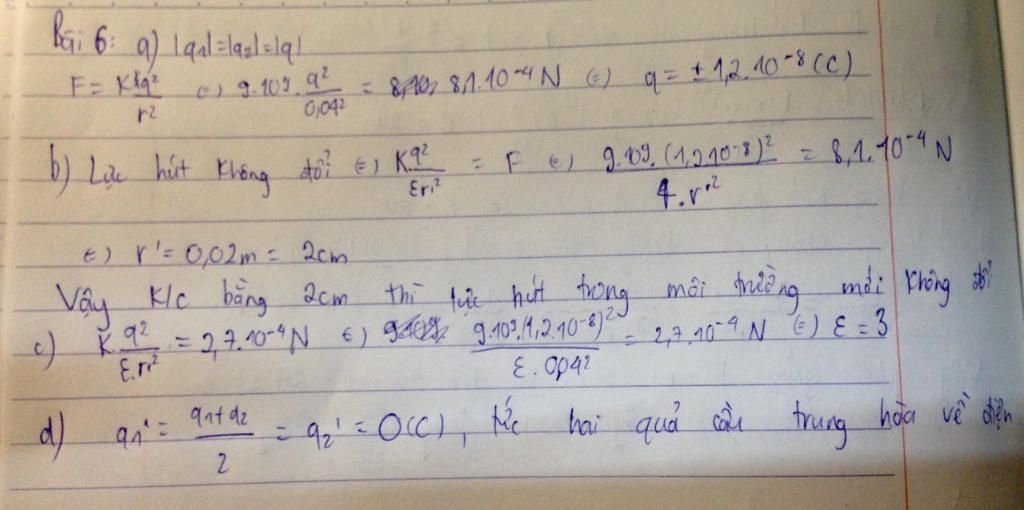 Bài 6: a) |q1|=|q2|=|q|
F = K q²/r² (=) 9.10⁹. q²/0,04² = 8,1.10⁻⁴ N (=) q = ± 1,2.10⁻⁸ (C)
b) Lực hút không đổi (=) K q²/εr'² = F (=) 9.10⁹.(1,2.10⁻⁸)²/4.r'² = 8,1.10⁻⁴ N
(=) r' = 0,02m = 2cm
Vậy K/c bằng 2cm thì lực hút trong môi trường mới không đổi
c) K. q²/ε.r² = 2,7.10⁻⁴ N (=) 9.10⁹.(1,2.10⁻⁸)²/ε.0,04² = 2,7.10⁻⁴ N (=) ε = 3
d) q1' = q1+q2/2 = q2' = 0(C), tức hai quả cầu trung hòa về điện